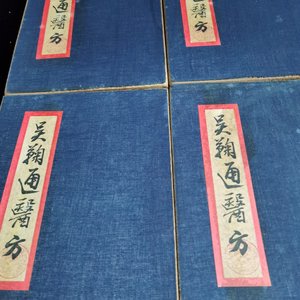 通醫方
醫方
吴鞠通醫方
吴鞠通醫方